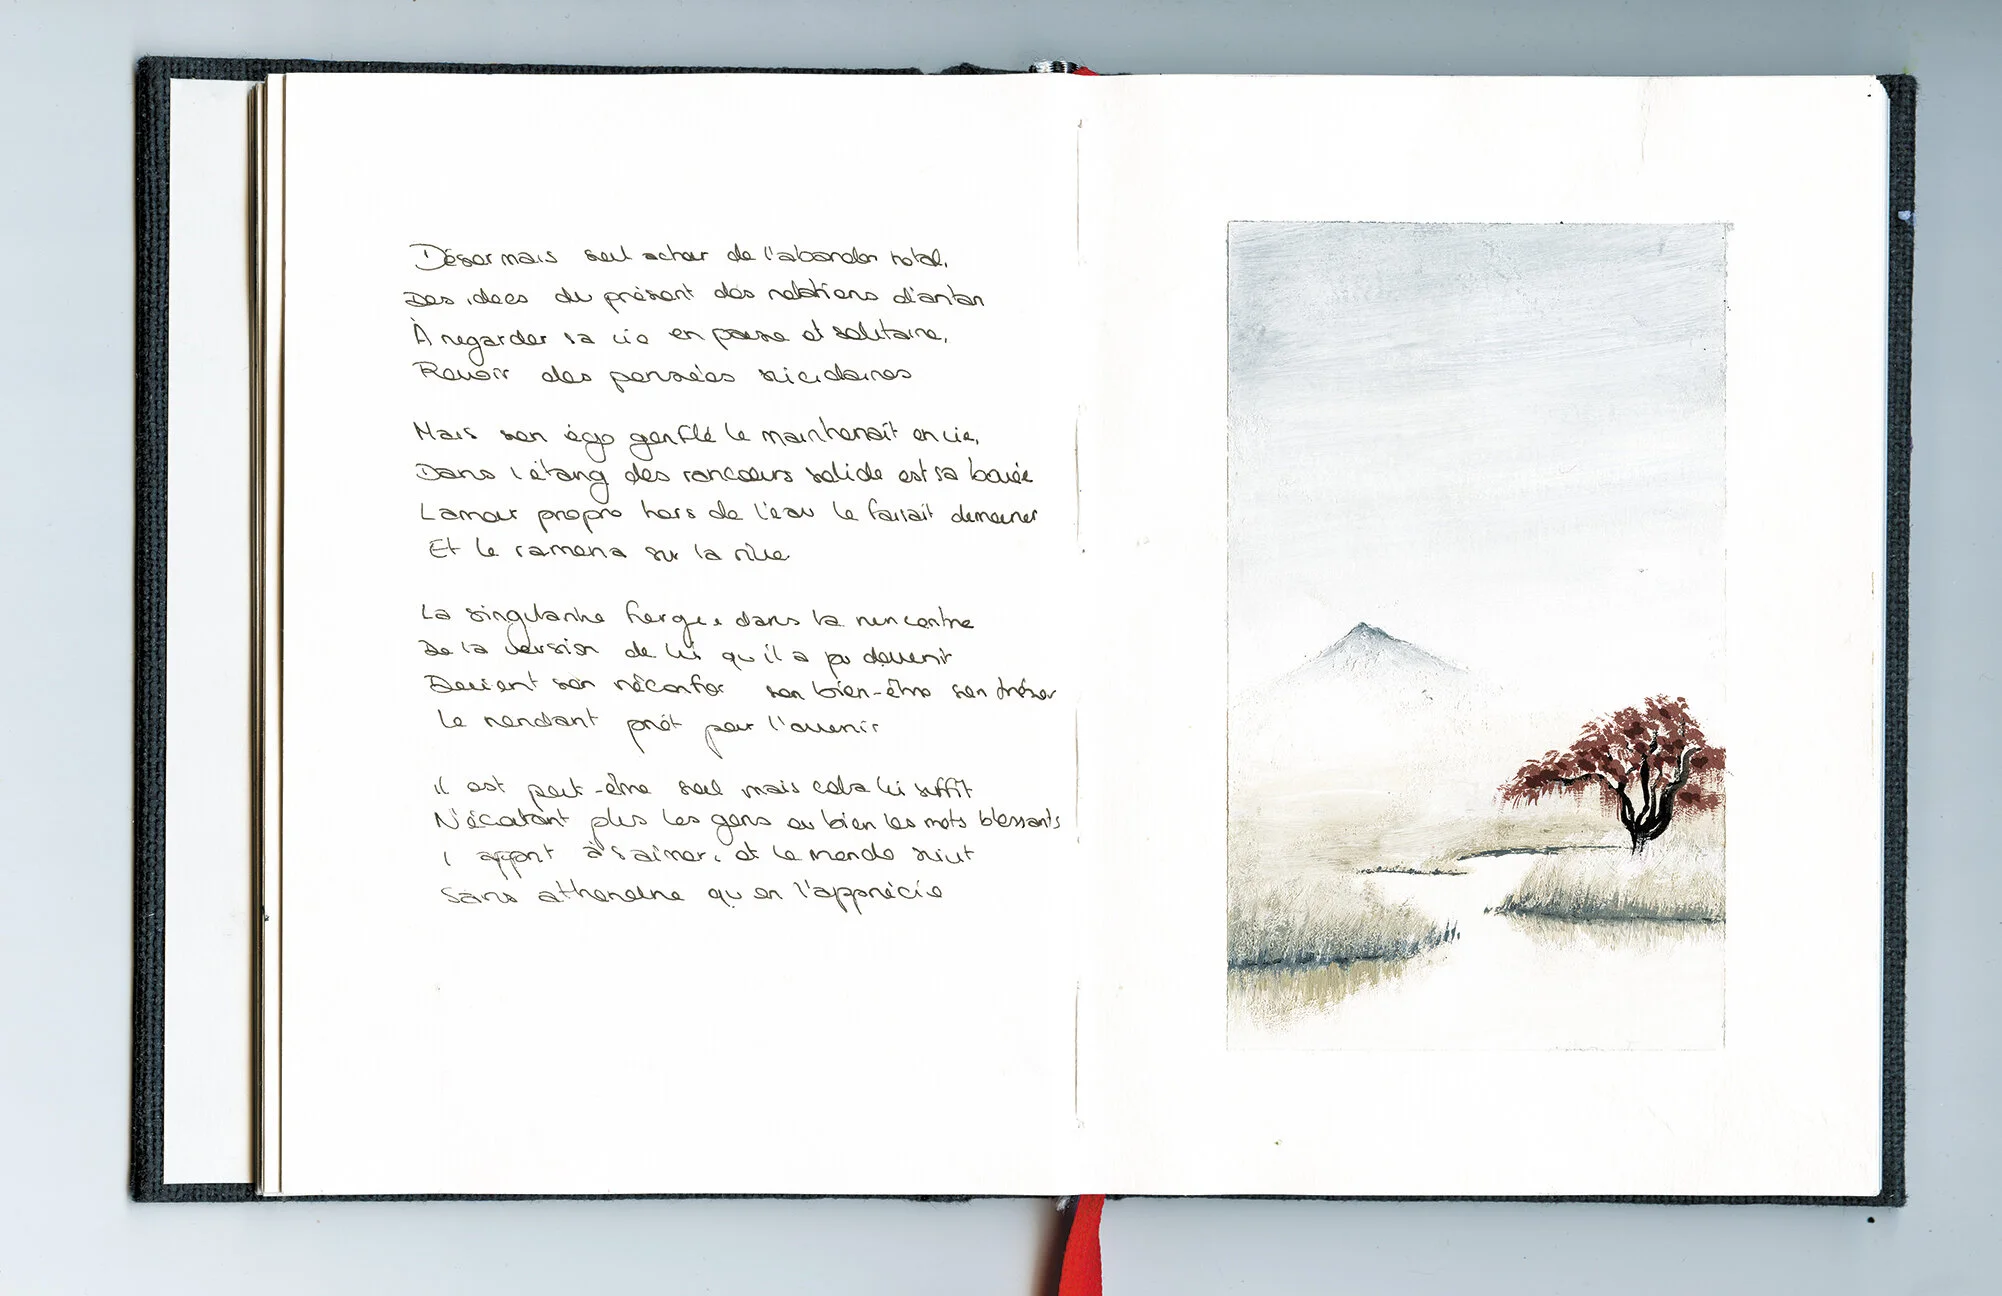 Désormais seul acteur de l'abandon total,
Des idées du présent des relations d'antan
À regarder sa vie en pause et solitaire,
Revoir des pensées suicidaires
Mais son égo gonflé le maintenait en vie,
Dans l'étang des rancœurs solide est sa bouée
L'amour propre hors de l'eau le faisait demeurer
Et le ramena sur la rive
La singularité forgée dans la rencontre
De la version de lui qu'il a pu devenir
Devient son réconfort son bien-être son trésor
Le rendant prêt pour l'avenir
Il est peut-être seul mais cela lui suffit
N'écoutant plus les gens ou bien les mots blessants
Il apprit à s'aimer, et le monde suivit
Sans attendre qu'on l'apprécie